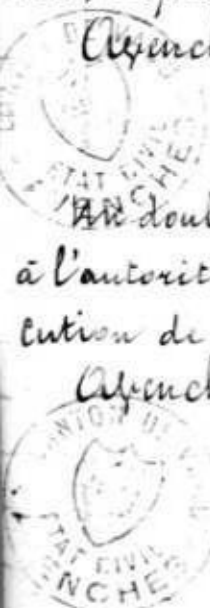 Avenc
ETAT CIVIL
Au doub
à l'autorit
cution de
Avenc
CANTON DE V
ETAT CIVIL
NCHES